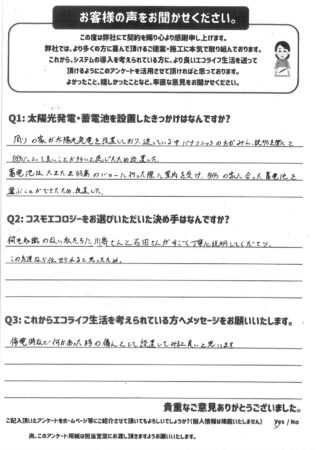 お客様の声をお聞かせください。
この度は弊社にて契約を賜り心より感謝申し上げます。
弊社では、より多くの方に喜んで頂けるご提案・施工に本気で取り組んでおります。
これから、システムの導入を考えられている方に、より良いエコライフ生活を送って
頂けるようにこのアンケートを活用させて頂ければと思っております。
よかったこと、嬉しかったことなど、率直な意見をお聞かせください。
Q1: 太陽光発電・蓄電池を設置したきっかけはなんですか?
周りの家が太陽光発電を設置しており、迷っている中パナソニックの 説明を聞いて
自分にとって良いことがあると感じたため設置した。
蓄電池は、たまたま のセールに行った際に案内を受け、自分の家に合った蓄電池を
選ぶことができたため、設置した。
Q2: コスモエコロジーをお選びいただいた決め手はなんですか?
何も知識のない私たちに川寿さんと石田さんがすごく丁寧に説明してくださり、
この方達なら任せられると思ったため。
Q3: これからエコライフ生活を考えられている方へメッセージをお願いいたします。
停電時など何かあった時の備えとして設置してみると良いと思います
貴重なご意見ありがとうございました。
ご記入頂いたアンケートをホームページ等にご紹介させて頂いてもよろしいでしょうか?(個人情報は掲載いたしません) Yes / No
尚、このアンケート用紙は担当営業にお渡し頂きますようお願いいたします。